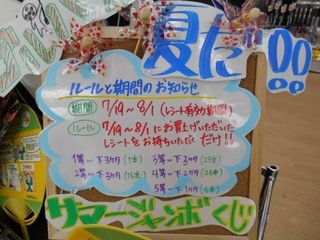 夏だ!!
ルールと期間のお知らせ
期間 7/19~8/1(レシート有効期間)
ルール 7/19~8/1にお買上げいただいた
レシートをお持ちいただくだけ!!
1等…下3ケタ(1本) 3等…下3ケタ(25本)
2等…下3ケタ(15本) 4等…下2ケタ
5等…下1ケタ
サマージャンボくじ